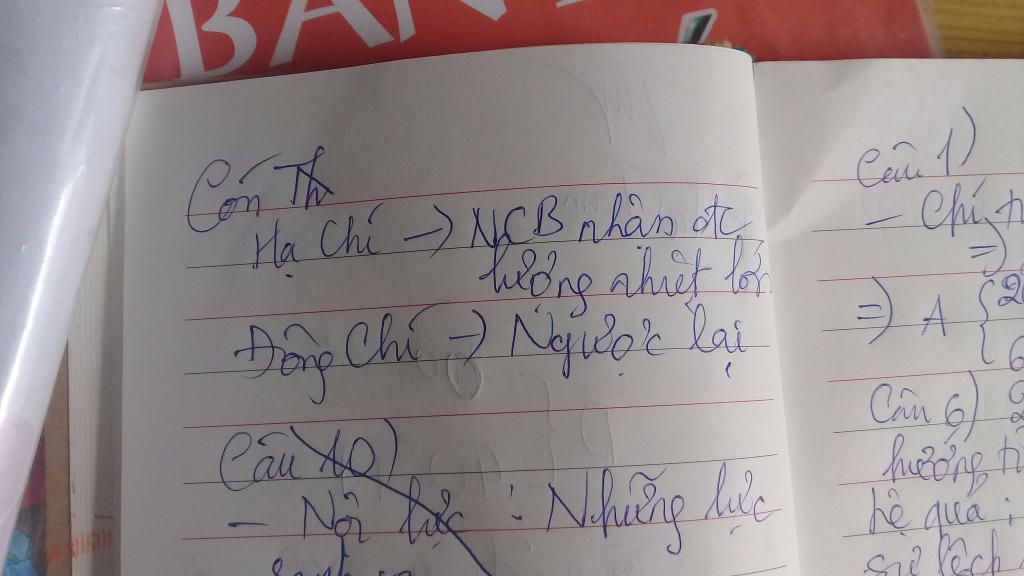 BAN
Còn Th
Hạ Chí → NCB nhận đc
lượng nhiệt lớn
Đông Chí → Ngược lại
Câu 10)
- Nội lực : Những lực
Câu 1)
- Chí
=>
=> A {
Câu 6)
hướng
hệ quả :
sự lệch